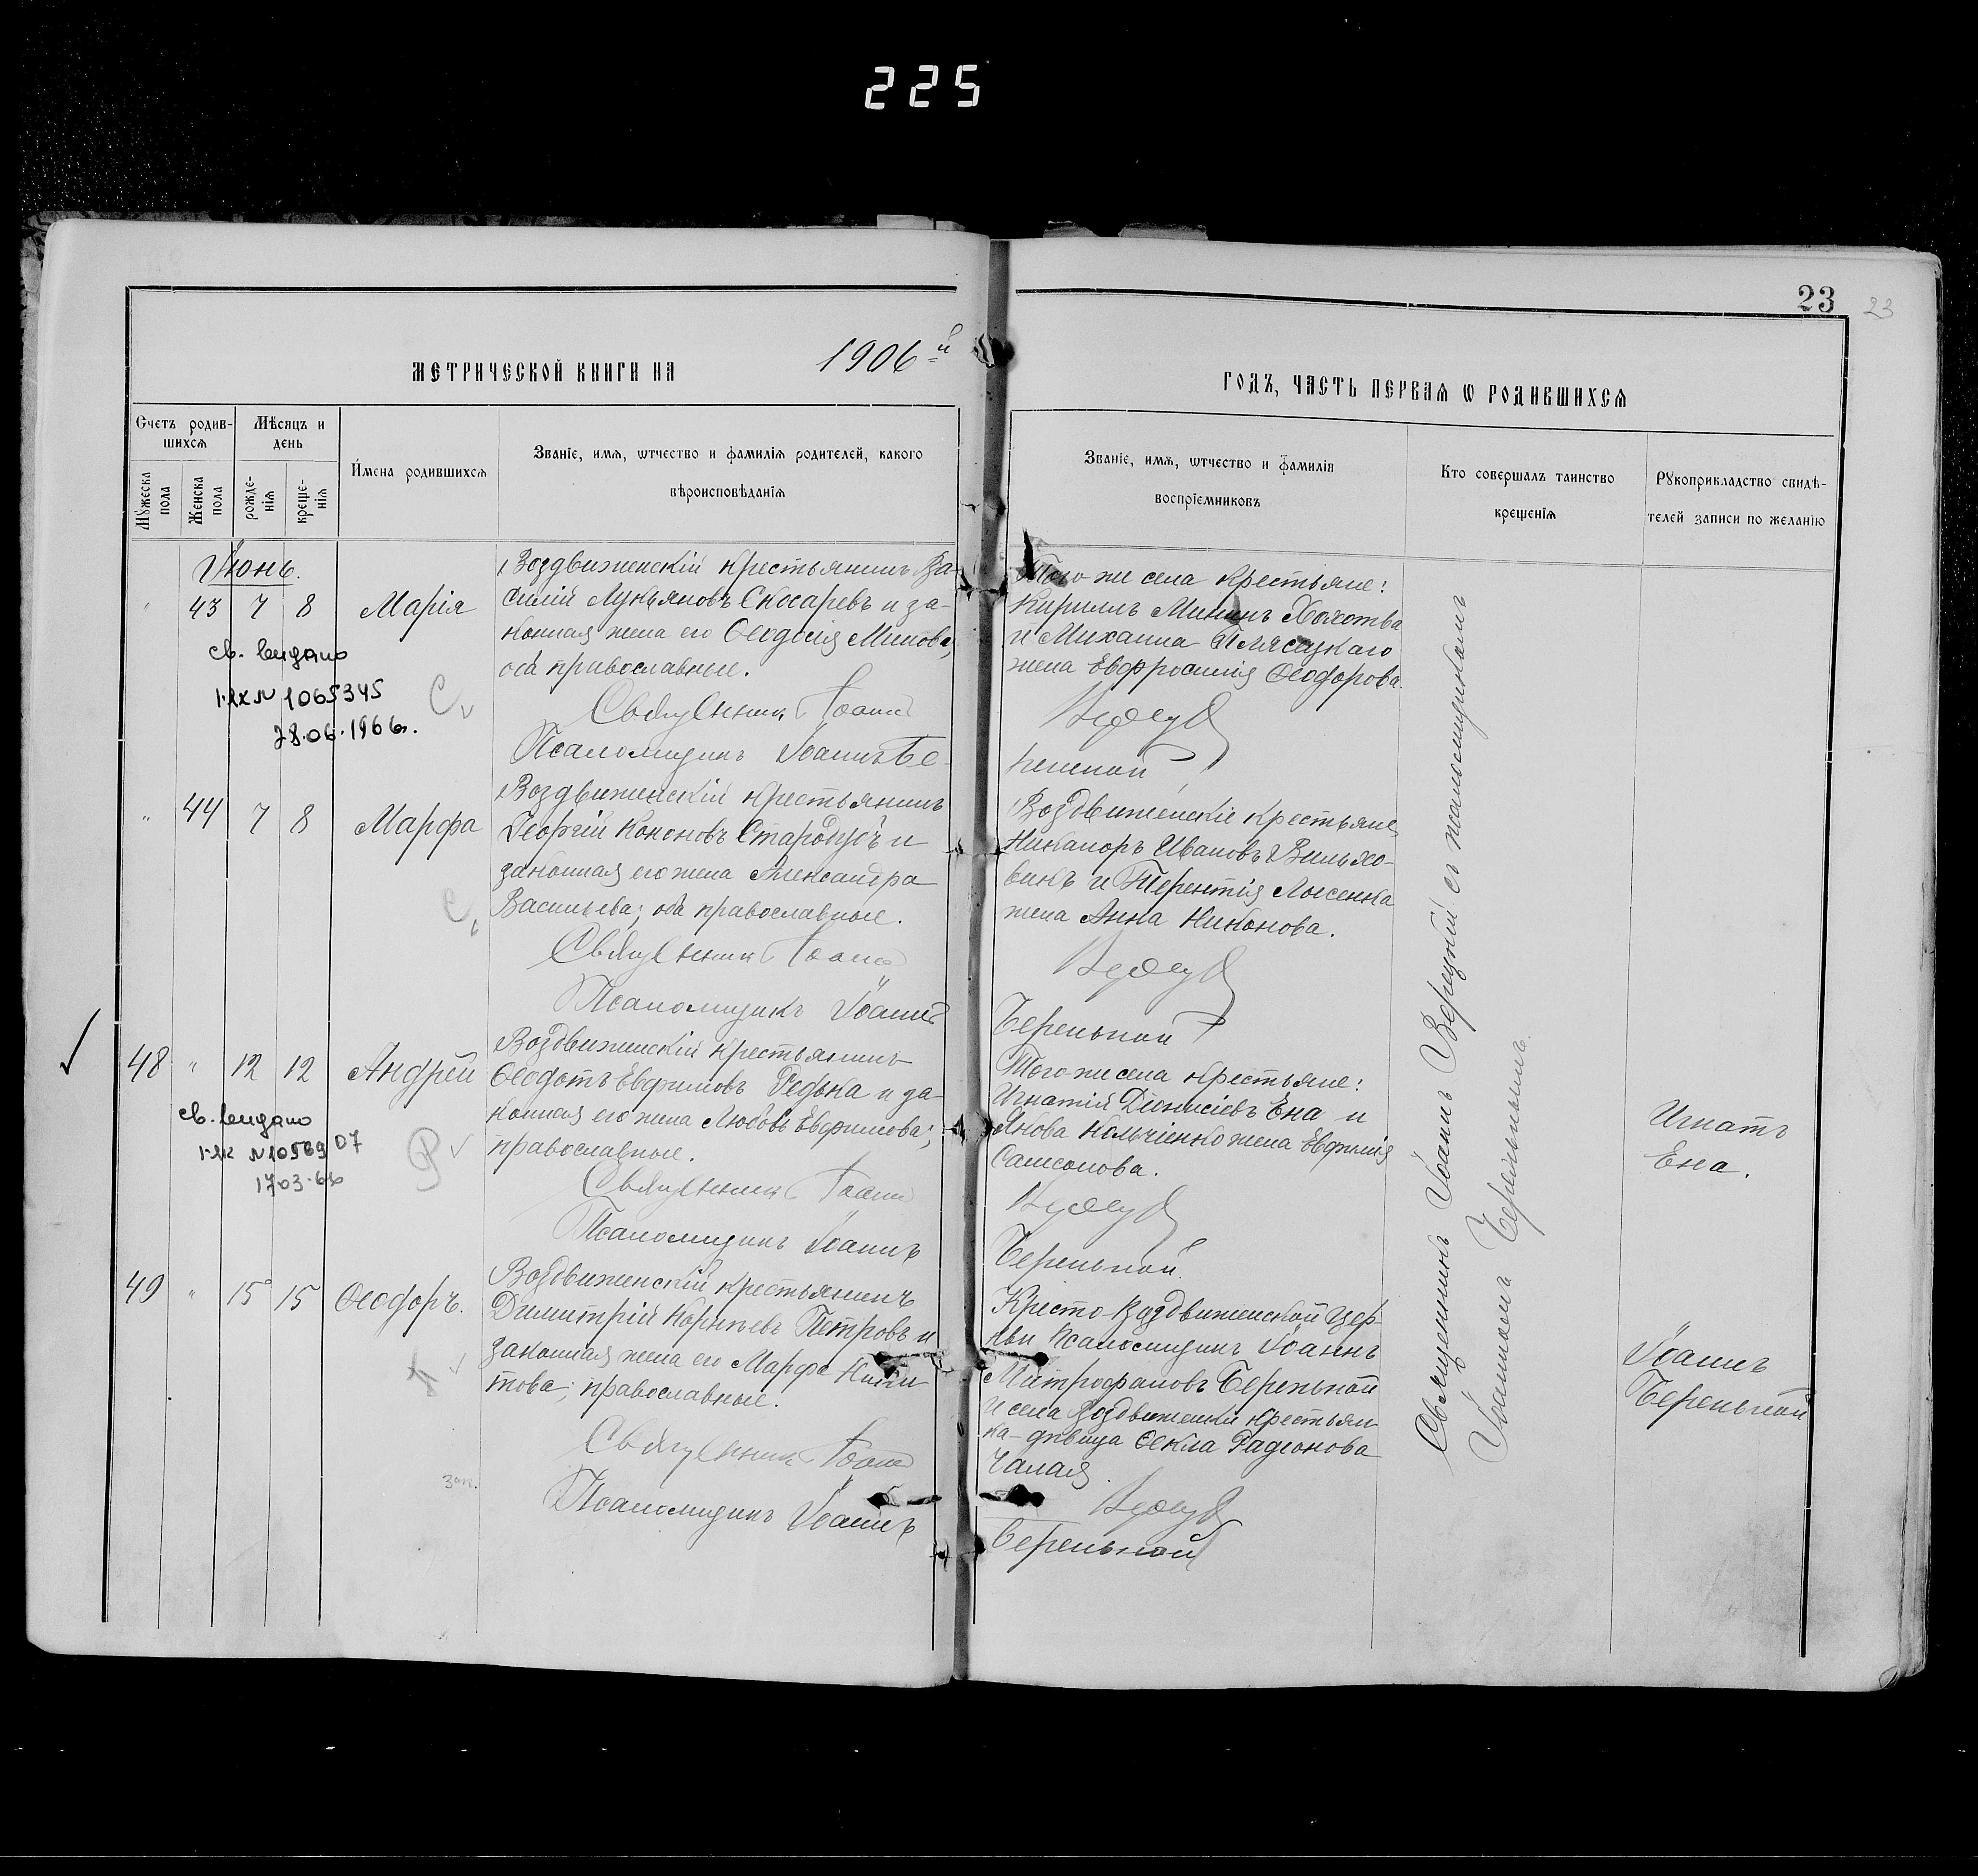 225
23
23
МЕТРИЧЕСКОЙ КНИГИ НА 1906й
ГОДЪ, ЧАСТЬ ПЕРВАѦ Ѡ РОДИВШИХСѦ
Счетъ родив-
шихсѧ
Мѣсяцъ и
день
Мꙋжеска
пола
Женска
пола
рожде-
нїѧ
креще-
нїѧ
Имена родившихсѧ
Званїе, имѧ, ѿчество и фамилїѧ родителей, какого
вѣроисповѣданїѧ
Званїе, имѧ, ѿчество и фамилїѧ
воспрїемниковъ
Кто совершалъ таинство
крещенїѧ
Рꙋкоприкладство свидѣ-
телей записи по желанїю
Іюнь.
" 43 7 8 Марія
Воздвиженскій крестьянинъ Ва-
силій Лукьяновъ Скосаревъ и за-
конная жена его Ѳеодосія Минова,
оба православные.
Священник Іоанн
Псаломщикъ Іоаннъ Бе-
Того-же села крестьяне:
Кириллъ Мининъ
и Михаила
жена Евфросинія Ѳеодорова.
реньной
св. видано
I-ЯХ № 1065345
28.06.1966.
С
" 44 7 8 Марфа
Воздвиженскій крестьянинъ
Георгій Кононовъ Стародубъ и
законная его жена Александра
Васильева; оба православные.
Священник Іоанн
Псаломщикъ Іоаннъ
Воздвиженскіе крестьяне
Никаноръ Ивановъ
и Терентія Лысенка
жена Анна Никонова.
Береньной
С
48 " 12 12 Андрей
Воздвиженскій крестьянинъ
Ѳеодотъ Евфимовъ Редька и за-
конная его жена Любовь Евфимова;
православные.
Священник Іоанн
Псаломщикъ Іоаннъ
Того-же села крестьяне:
Игнатій Діонисіевъ Ена и
Якова Кольчіенко жена Евфимія
Самсонова.
Береньной.
Игнатъ
Ена.
св. видано
№ 1056907
17.03.66
Р
49 " 15 15 Ѳеодоръ.
Воздвиженскій крестьянинъ
Димитрій Корнѣевъ Петровъ и
законная жена его Марфа Ники-
това; православные.
Священник Іоанн
Псаломщикъ Іоаннъ
Кресто-Воздвиженской цер-
кви Псаломщикъ Іоаннъ
Митрофановъ Береньной
и села Воздвиженки крестьян-
ка-дѣвица Ѳекла Радіонова
Чалая.
Береньной
Іоаннъ
Береньной
зап.
Священникъ Іоаннъ Верецкій съ псаломщикомъ
Іоанномъ Береньнымъ.